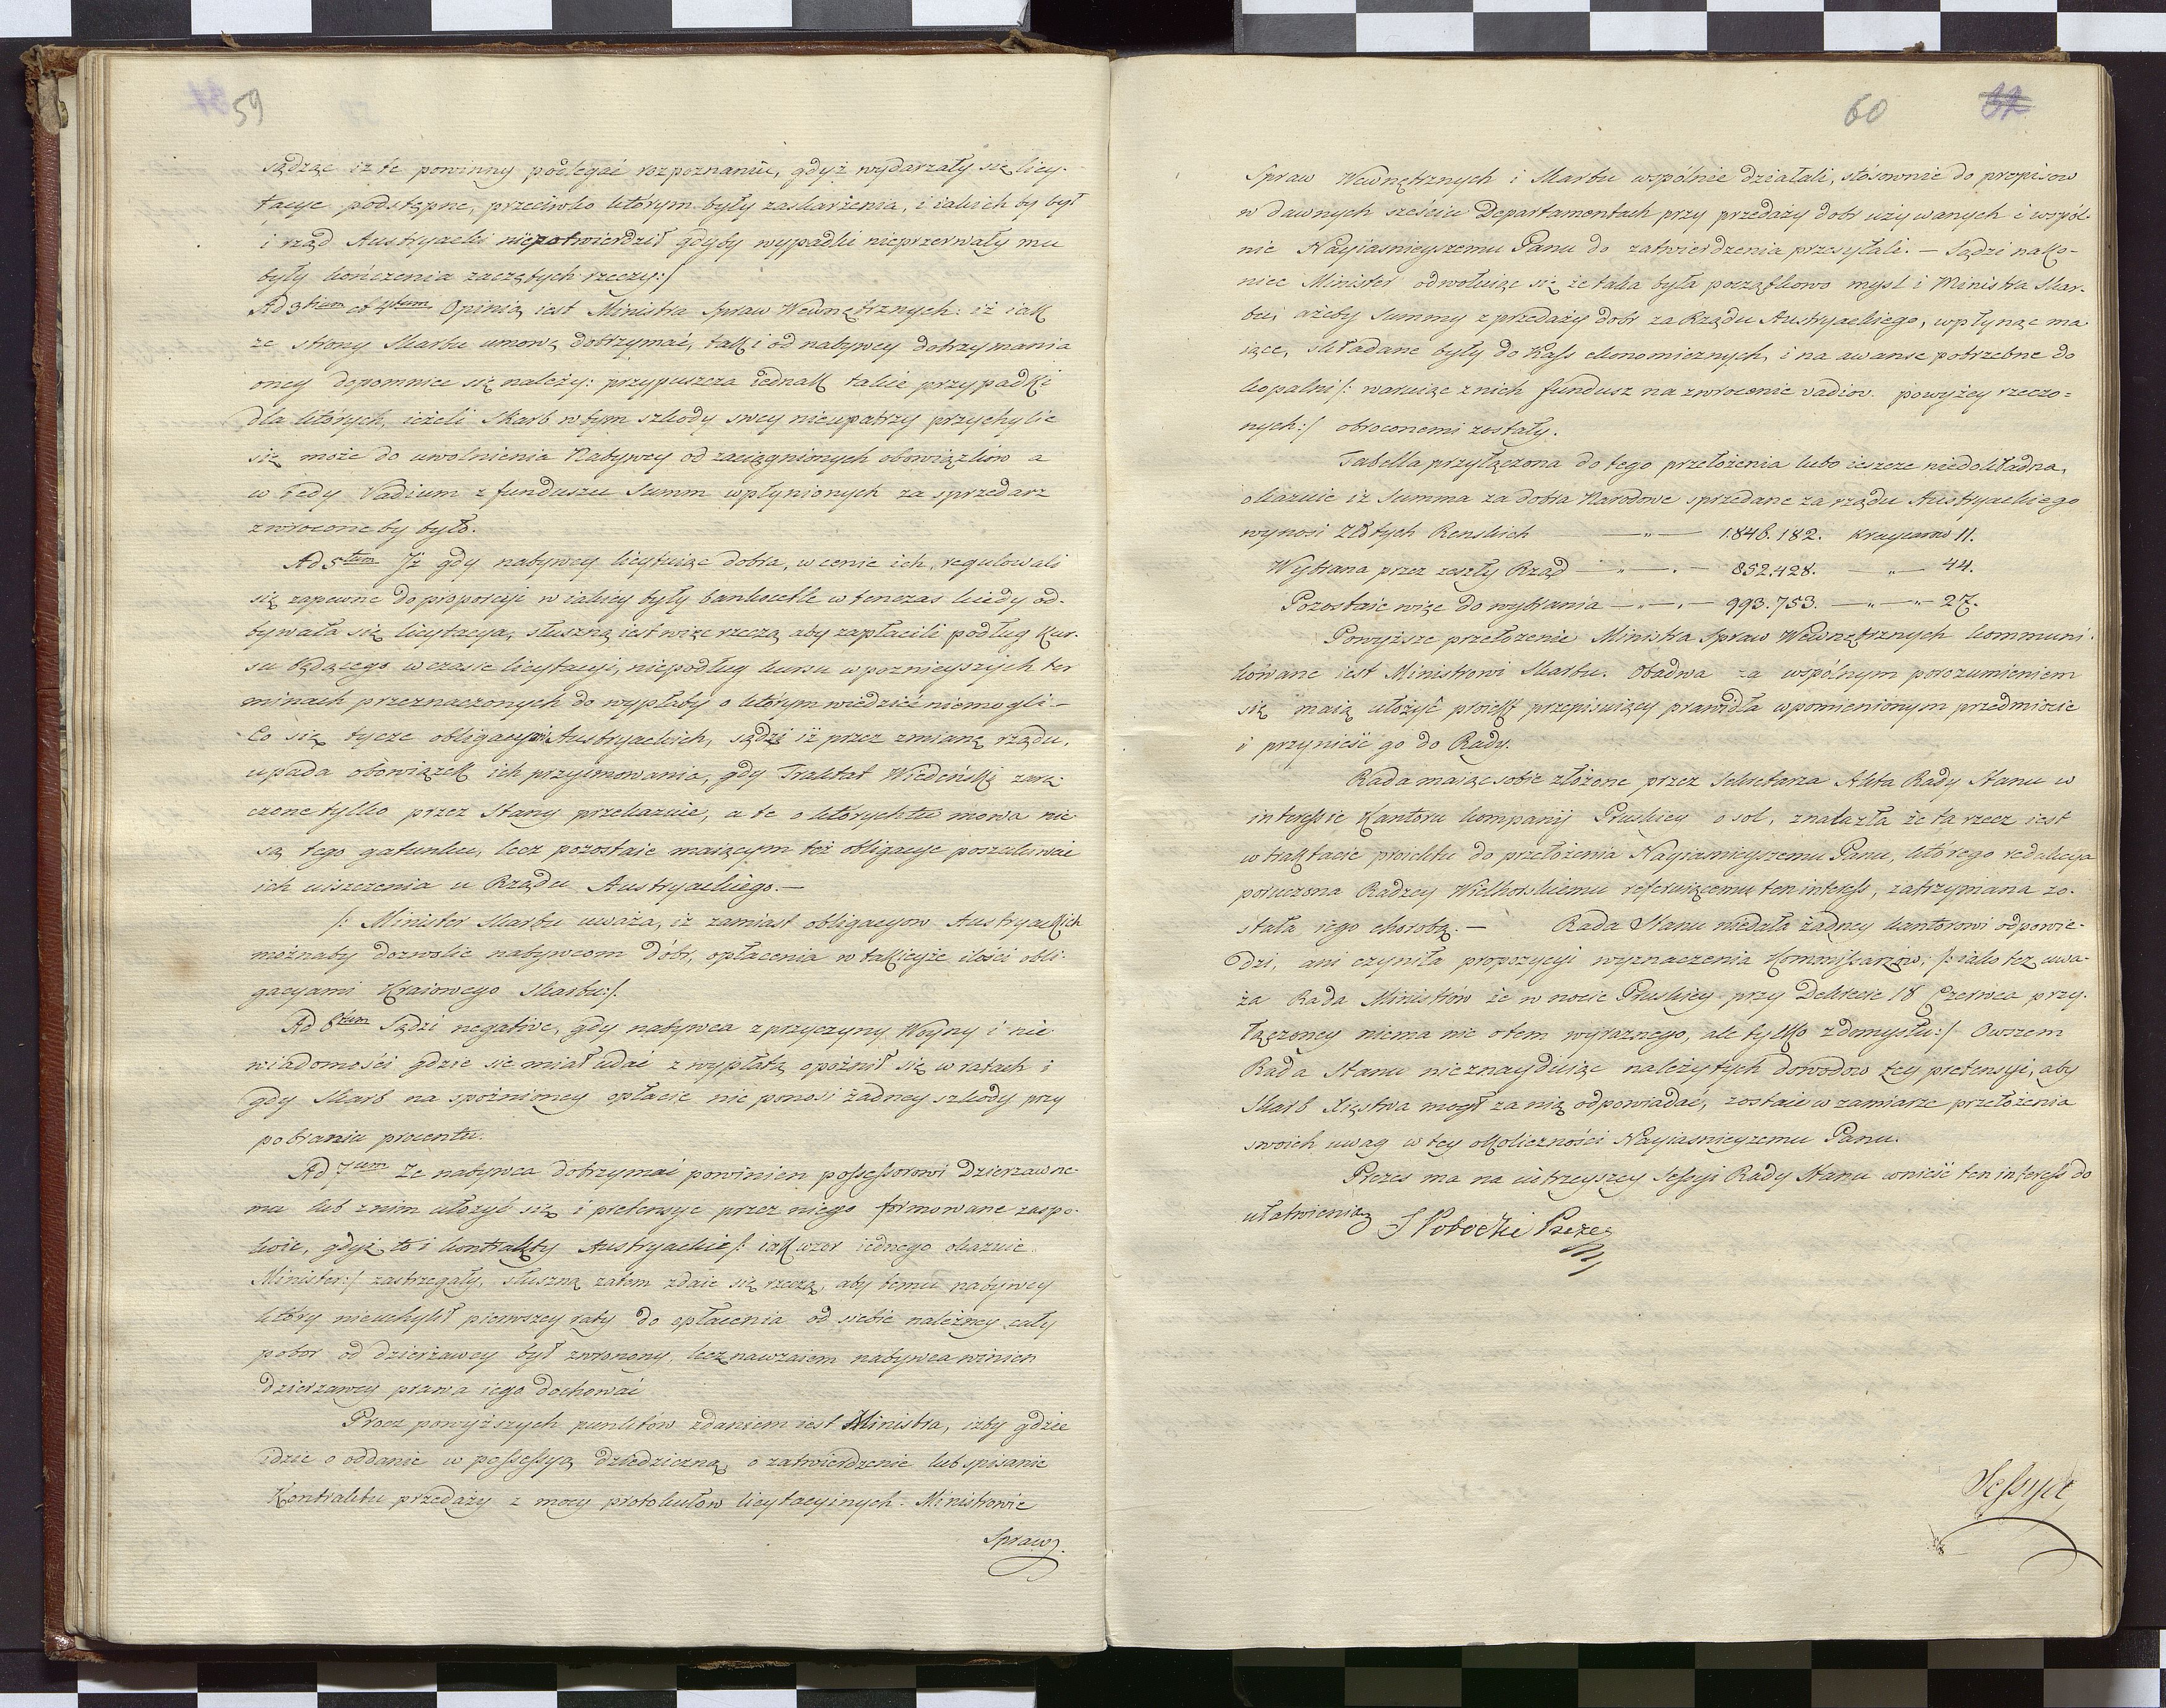 59
sądząc iż te powinny podlegać rozpoznaniu, gdyż wydarzały się licy-
tacye podstępne, przeciwko którym były zaskarżenia, i iakich by był
i rząd Austryacki niepotwierdził gdyby wypadki nieprzerwały mu
były kończenia zaczętych rzeczy:/
Ad 3tium et 4tum Opinią iest Ministra Spraw Wewnętrznych: iż iak
ze strony Skarbu umowę dotrzymać, tak i od nabywcy dotrzymania
oney dopomnieć się należy: przypuszcza iednak takie przypadki
dla których, ieżeli Skarb w tym szkody swey nieupatrzy przychylić
się może do uwolnienia Nabywcy od zaciągnionych obowiązków a
w tedy Vadium z funduszu Summ wpłynionych za sprzedarz
zwrocone by było.
Ad 5tum Iż gdy nabywcy licytuiąc dobra, w cenie ich, regulowali
się zapewne do proporcyi w iakiey były bankocetle w tenczas kiedy od-
bywała się licytacya, słuszną iest więc rzeczą aby zapłacili podług Kur-
su będącego w czasie licytacyi, niepodług kursu w poznieyszych ter
minach przeznaczonych do wypłaty o którym wiedzieć niemogli. —
Co się tycze obligacyi Austryackich, sądzi iż przez zmianę rządu,
upada obowiązek ich przyimowania, gdy Traktat Wiedeński zarę-
czone tylko przez Stany przekazuie, a te o których tu mowa nie
są tego gatunku, lecz pozostaie maiącym też obligacye poszukiwać
ich uiszczenia u Rządu Austryackiego. —
/: Minister Skarbu uważa, iż zamiast obligacyow Austryackich
możnaby dozwolić nabywcom dóbr, opłacenia w takieyże ilości obli-
gacyami Kraiowego Skarbu:/.
Ad 6tum Sądzi negative, gdy nabywca z przyczyny Woyny i nie
wiadomości gdzie się miał udać z wypłatą opóźnił się w ratach i
gdy Skarb na spóźnioney opłacie nie ponosi żadney szkody przy
pobraniu procentu.
Ad 7um Że nabywca dotrzymać powinien possessorowi Dzierzawne-
mu lub z nim ułożyć się i pretensye przez niego formowane zaspo-
koić, gdyż to i kontrakty Austryackie /: iak wzor iednego okazuie
Minister:/ zastrzegały, słuszną zatem zdaie się rzeczą, aby temu nabywcy
który nieuchylił pierwszey raty do opłacenia od siebie należney cały
pobor od dzierżawcy był zwrocony, lecz nawzaiem nabywca winien
dzierzawcy prawa iego dochować
Procz powyższych punktów zdaniem iest Ministra, iżby gdzie
idzie o oddanie w possessyą dziedziczną, o zatwierdzenie lub spisanie
Kontraktu przedaży z mocy protokułow licytacyinych. Ministrowie
Spraw.
60
Spraw Wewnętrznych i Skarbu wspólnie działali, stósownie do przepisow
w dawnych sześciu Departamentach przy przedaży dobr używanych i wspól-
nie Nayiasnieyszemu Panu do zatwierdzenia przesyłali. — Sądzi nako-
niec Minister odwołuiąc się że taka była początkowo mysl i Ministra Skar-
bu, ażeby Summy z przedaży dobr za Rządu Austryackiego, wpłynąc ma
iące, składane były do Kass ekonomicznych, i na awanse potrzebne do
kopalni /: waruiąc z nich fundusz na zwrocenie vadiow powyżey rzeczo-
nych:/ obroconemi zostały.
Tabella przyłączona do tego przełożenia lubo ieszcze niedokładna,
okazuie iż Summa za dobra Narodowe sprzedane za rządu Austryackiego
wynosi Złotych Renskich —„— 1.846.182. Kraycarow 11.
Wybrana przez zeszły Rząd —„—.— 852.428. —„— 44.
Pozostaie więc do wybrania —„—.— 993.753. —„—„ 27.
Powyższe przełożenie Ministra Spraw Wewnętrznych kommuni-
kowane iest Ministrowi Skarbu. Obadwa za wspólnym porozumieniem
się maią ułożyć proiekt przepisuiący prawidła w pomienionym przedmiocie
i przynieść go do Rady.
Rada maiąc sobie złożone przez Sekretarza Akta Rady Stanu w
interessie Kantoru kompanij Pruskiey o sol, znalazła że ta rzecz iest
w traktacie proiektu do przełożenia Nayiasnieyszemu Panu, którego redakcya
poruczona Radzcy Wielhorskiemu referuiącemu ten interess, zatrzymana zo-
stała iego chorobą. — Rada Stanu niedała żadney kantorowi odpowie-
dzi, ani czyniła propozycyi wyznaczenia Kommissarzow; /: iako też uwa-
ża Rada Ministrów że w nocie Pruskiey przy Dekrecie 18 Czerwca przy-
łączoney niema nic o tem wyraznego, ale tylko z domysłu:/ Owszem
Rada Stanu nieznayduiąc należytych dowodow tey pretensyi, aby
Skarb Xięstwa mogł za nią odpowiadać, zostaie w zamiarze przełożenia
swoich uwag w tey okoliczności Nayiasnieyszemu Panu.
Prezes ma na iutrzeyszey Sessyi Rady Stanu wnieść ten interess do
ułatwienia
S Potocki Prezes
Sessya